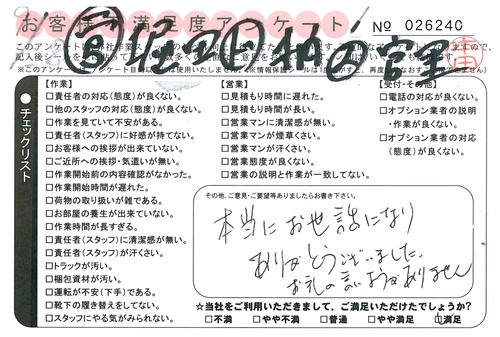 お客様不満足度アンケート
No 026240
チェックリスト
【作業】
□責任者の対応(態度)が良くない。
□他のスタッフの対応(態度)が良くない。
□作業を見ていて不安がある。
□責任者(スタッフ)に好感が持てない。
□お客様への挨拶が出来ていない。
□ご近所への挨拶・気遣いが無い。
□作業開始前の内容確認がなかった。
□作業開始時間が遅れた。
□荷物の取り扱いが雑である。
□お部屋の養生が出来ていない。
□作業時間が長すぎる。
□責任者(スタッフ)に清潔感が無い。
□責任者(スタッフ)が汗くさい。
□トラックが汚い。
□梱包資材が汚い。
□運転が不安(下手)である。
□靴下の履き替えをしてない。
□スタッフにやる気がみられない。
【営業】
□見積もり時間に遅れた。
□見積もり時間が長い。
□営業マンに清潔感が無い。
□営業マンが煙草くさい。
□営業マンが汗くさい。
□営業態度が良くない。
□営業の説明と作業が一致してない。
【受付・その他】
□電話の対応が良くない。
□オプション業者の説明
・作業が良くない。
□オプション業者の対応
(態度)が良くない。
その他、ご意見・ご要望等ありましたらお書き下さい。
本当にお世話になり
ありがとうございました。
お礼の言いようがありません
☆当社をご利用いただきまして、ご満足いただけたでしょうか?
□不満 □やや不満 □普通 □やや満足 □満足